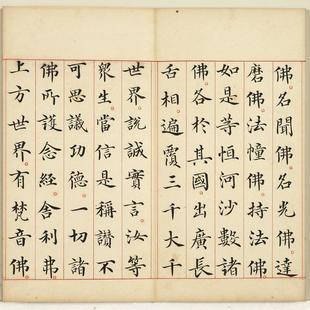 佛名聞佛名光佛達
磨佛法幢佛持法佛
如是等恒河沙數諸
佛各於其國出廣長
舌相遍覆三千大千
世界說誠實言汝等
眾生當信是稱讚不
可思議功德一切諸
佛所護念經舍利弗
上方世界有梵音佛